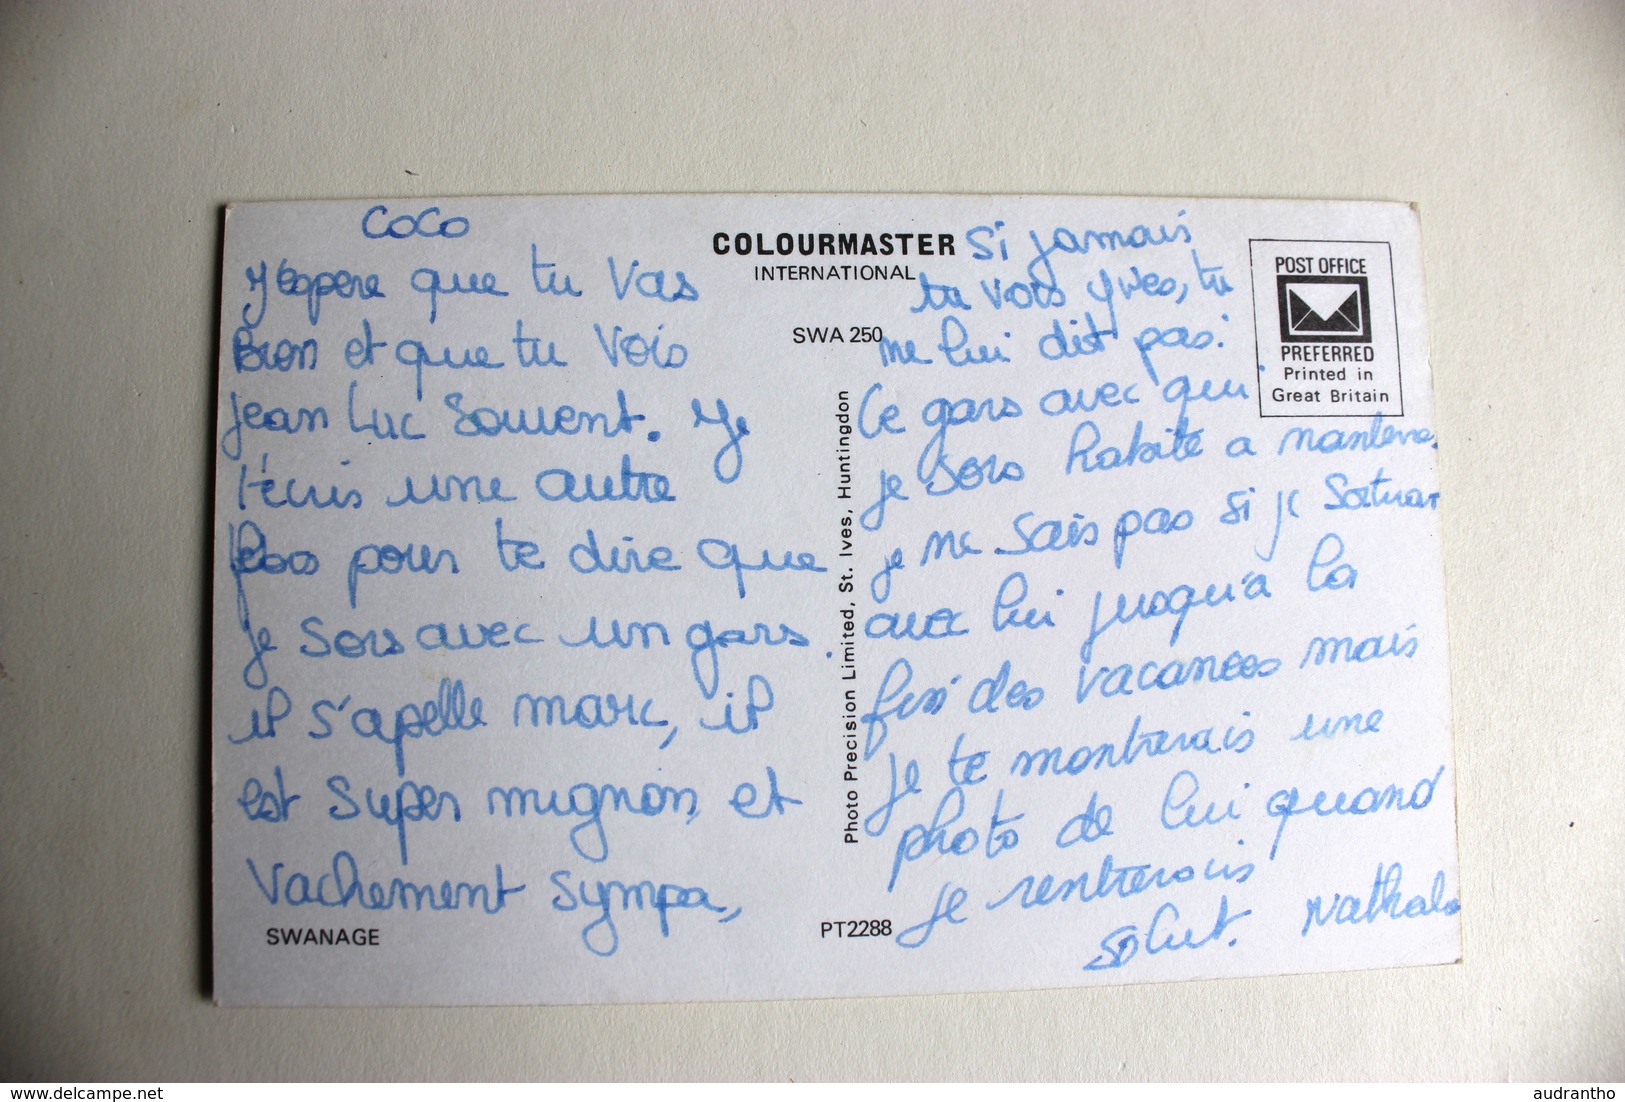 COCO
J'éspere que tu vas
Bien et que tu vois
Jean Luc souvent. Je
t'écris une autre
fois pour te dire que
je sors avec un gars.
il s'apelle marc, il
est super mignon, et
vachement sympa,
SWANAGE
COLOURMASTER
INTERNATIONAL
SWA 250
Photo Precision Limited, St. Ives, Huntingdon
PT2288
Si jamais
tu vois yves, tu
ne lui dit pas!
Ce gars avec qui
je sors habite a nanterre.
je ne sais pas si je
avec lui jusqu'a la
fin des vacances mais
je te montrerais une
photo de lui quand
je rentrerais
salut. Nathalie
POST OFFICE
PREFERRED
Printed in
Great Britain
delcampe.net
audrantho